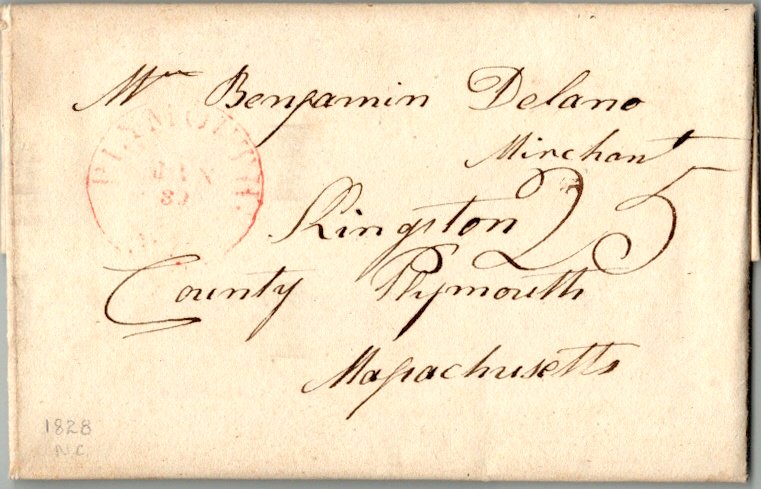 Mr Benjamin Delano
Mirchant
PLYMOUTH
JAN
30
Kingston 25
County Plymouth
Maſsachusetts
1828
N.C.